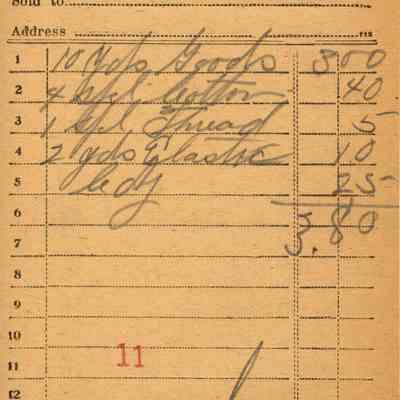 Sold to
Address
1 10 Yds Goods 300
2 4 Spl Cotton 40
3 1 Spl Thread 5
4 2 yds Elastic 10
5 25
6 3.80
7
8
9
10
11 11
12